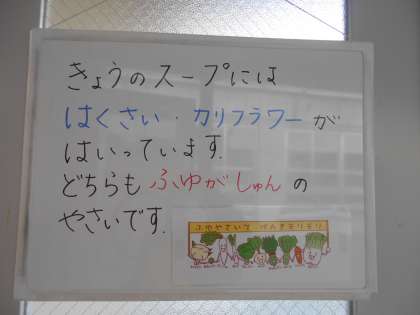 きょうのスープには
はくさい・カリフラワーが
はいっています.
どちらも ふゆがしゅんの
やさいです.
ふゆやさいで